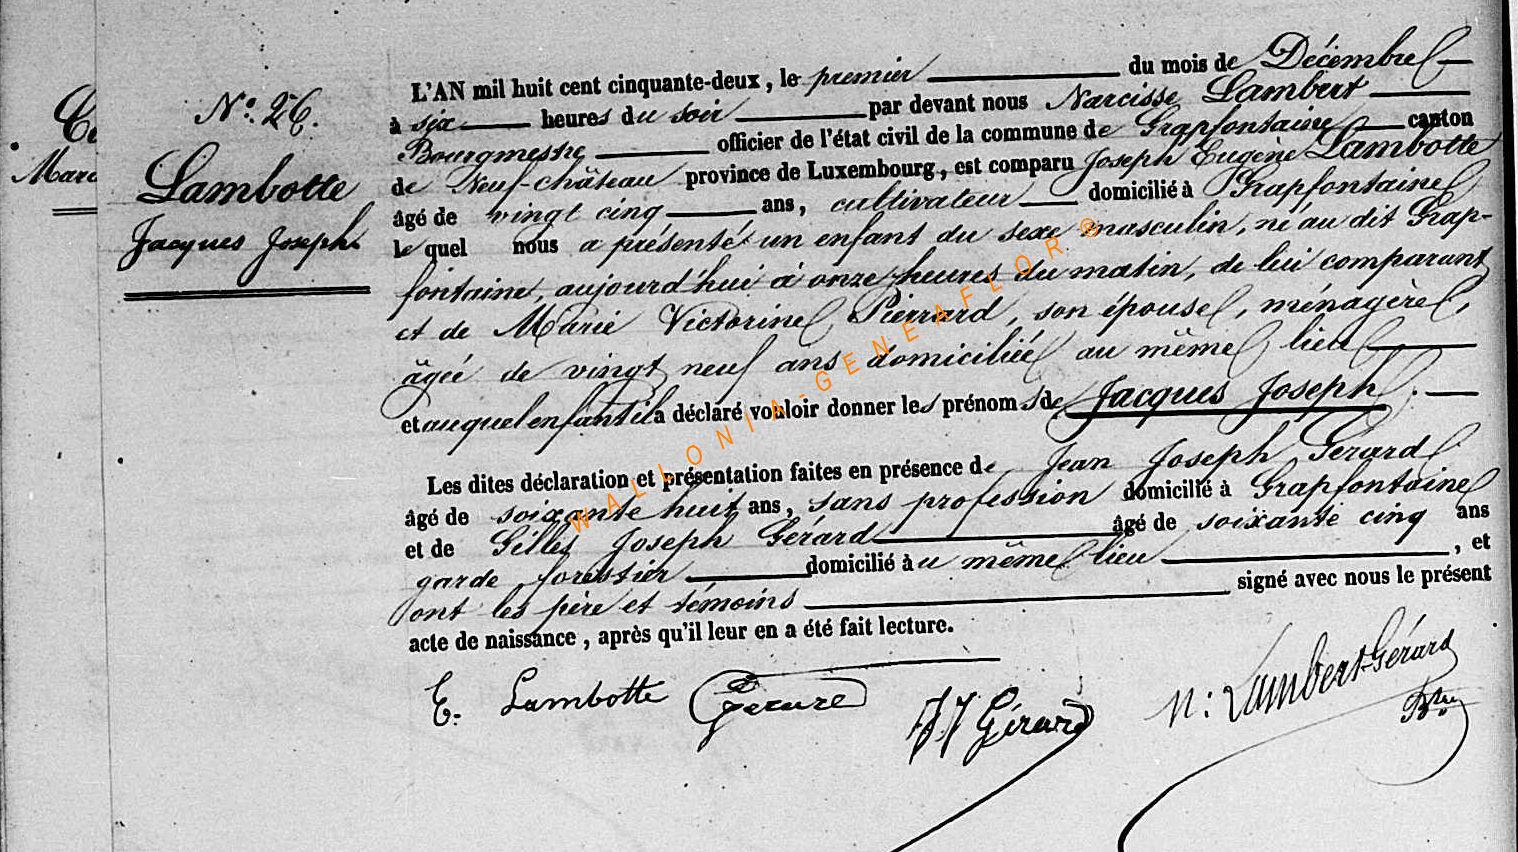 Ce
Marc
N° 26.
Lambotte
Jacques Joseph
L'AN mil huit cent cinquante-deux, le premier du mois de Décembre
à six heures du soir par devant nous Narcisse Lambert
Bourgmestre officier de l'état civil de la commune de Grapfontaine canton
de Neuf-château province de Luxembourg, est comparu Joseph Eugène Lambotte
âgé de vingt cinq ans, cultivateur domicilié à Grapfontaine
le quel nous a présenté un enfant du sexe masculin, né au dit Grap-
fontaine, aujourd'hui à onze heures du matin, de lui comparant
et de Marie Victorine Pierrard, son épouse, ménagère,
âgée de vingt neuf ans domiciliée au même lieu
et auquel enfant il a déclaré vouloir donner les prénoms de Jacques Joseph.
Les dites déclaration et présentation faites en présence de Jean Joseph Gérard
âgé de soixante huit ans, sans profession domicilié à Grapfontaine
et de Gilles Joseph Gérard âgé de soixante cinq ans
garde forestier domicilié au même lieu, et
ont les père et témoins signé avec nous le présent
acte de naissance, après qu'il leur en a été fait lecture.
E. Lambotte Gerare JJ Gérard N: Lambert-Gérard
WALLONIA-GENEAFLOR®